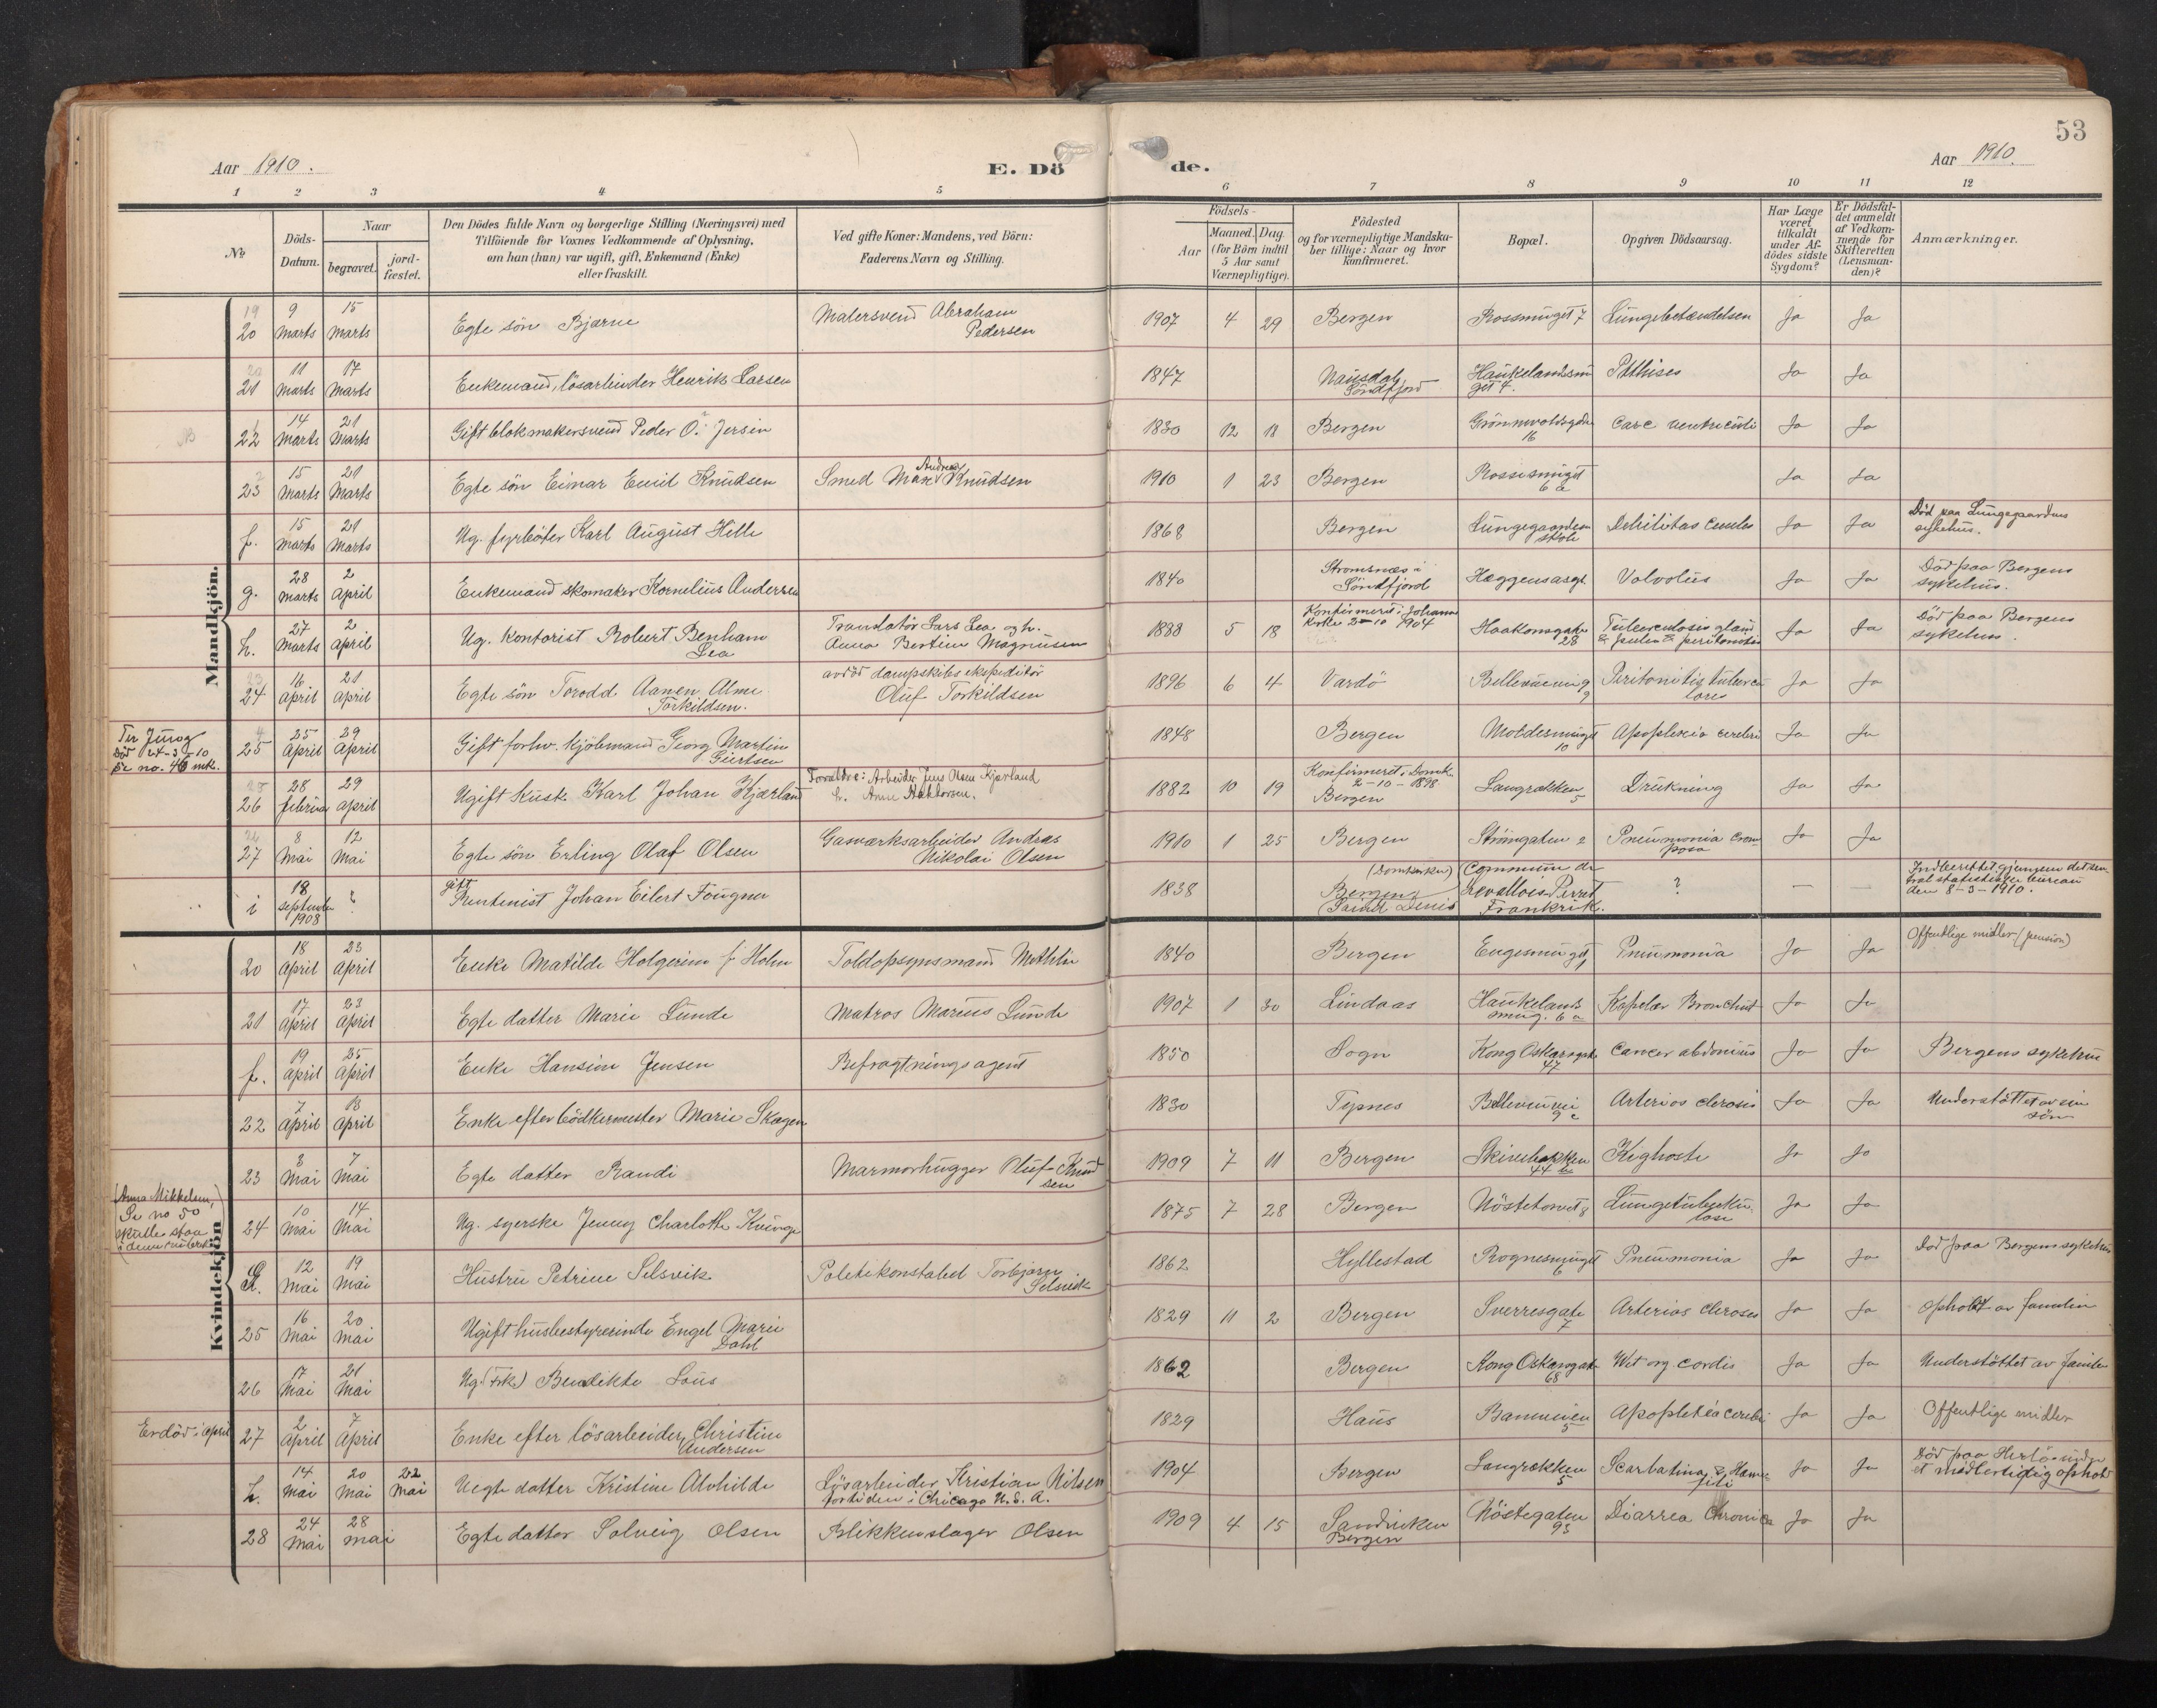 53
Aar 1910.
E. Dö de.
Aar 1910.
1 2 3 4 5 6 7 8 9 10 11 12
Nr
Döds-Datum.
Naar
begravet.
jord-fæstet.
Den Dödes fulde Navn og borgerlige Stilling (Næringsvei) med
Tilföiende for Voxnes Vedkommende af Oplysning,
om han (hun) var ugift, gift, Enkemand (Enke)
eller fraskilt.
Ved gifte Koner: Mandens, ved Börn:
Faderens Navn og Stilling.
Födsels-
Aar
Maaned. Dag.
(for Börn indtil
5 Aar samt
Værnepligtige).
Födested
og for værnepligtige Mandska-
ber tillige: Naar og hvor
konfirmeret.
Bopæl.
Opgiven Dödsaarsag.
Har Læge
været
tilkaldt
under Af-
dödes sidste
Sygdom?
Er Dödsfal-
det anmeldt
af Vedkom-
mende for
Skifteretten
(Lensman-
den)?
Anmærkninger.
Mandkjön.
19
20 9 Marts 15 Marts Egte sön Bjarne Malersvend Abraham Pedersen 1907 4 29 Bergen 7 Lungebetændelsen Ja Ja
21 11 Marts 17 Marts Enkemand, lösarbeider Henrik Larsen 1847 Naustdal Söndfjord Haukelandsmuget 4. Pthisis Ja Ja
22 14 Marts 21 Marts Gift blokmakersvend Peder O. Jersin 1830 12 18 Bergen 16 Carc ventriculi Ja Ja
23 15 Marts 21 Marts Egte sön Einar Emil Knudsen Smed Max Andreas Knudsen 1910 1 23 Bergen 6 a Ja Ja
f. 15 Marts 21 Marts Ug. fyrböter Karl August Hille 1868 Bergen Ja Ja Död paa Lungegaardens sykehus.
g. 28 Marts 2 April Enkemand skomaker Kornelius Andersen 1840 Stromsnæs i Söndfjord Volvolus Ja Ja Död paa Bergens sykehus.
h. 27 Marts 2 April Ug. kontorist Robert Benham Lea Translatör Lars Lea og h. Anna Bertine Magnussen 1888 5 18 Konfirmert i Johannes kirke 2-10 1904 Haakonsgaten 28 Ja Ja Död paa Bergens sykehus.
24 16 April 21 April Egte sön Torodd Aanen Alme Torkildsen. avdöd dampskibsekspeditör Oluf Torkildsen 1896 6 4 Vardö 9 Ja Ja
Død 24-3-10
Se no. 46 mk.
25 25 April 29 April Gift forhv. kjöbmand Georg Martin Giertsen 1848 Bergen 10 Apoplexia cerebri Ja Ja
26 28 februar 29 April Ugift Kusk Karl Johan Kjærland Forældre: Arbeider Jens Olsen Kjærland h. Anne 1882 10 19 Konfirmeret i Domk. 2-10-1898 Bergen Langrækken 5 Drukning Ja Ja
27 8 Mai 12 Mai Egte sön Erling Olaf Olsen Gasværksarbeider Andreas Nikolai Olsen 1910 1 25 Bergen Strangaten 2 Pneumonia Ja Ja
i 18 September 1908 ? gift Rentenist Johan Eilert Fougner 1838 (Domkirken) Bergen Saint Denis Commune de Levallois-Perret Frankrik. ? — — Indberettet gjennem det sentral statistiske bureau den 8-3-1910.
Kvindekjön
20 18 April 23 April Enke Matilde Holgerine f. Holm Toldopsynsmand 1840 Bergen Engesmuget 1 Pneumonia Ja Ja Offentlige midler (pension)
21 17 April 23 April Egte datter Marie Lunde Matros Marius Lunde 1907 1 30 Lindaas Haukelandsmug. 6 a Kapelær Bronchit Ja Ja
f. 19 April 25 April Enke Hansine Jensen Befragtningsagent 1850 Sogn Kong Oskarsgate 47 Ja Ja Bergens sykehus
22 7 April 13 April Enke efter bödkermester Marie Skagen 1830 Bellevuevei 9 c Arterios clerosis Ja Ja Understöttet av sin sön
23 3 Mai 7 Mai Egte datter Randi Marmorhugger Oluf Knudsen 1909 7 11 Bergen 44 Kighoste Ja Ja
(Anna Mikkelsen,
Se no 50
skulle staa
i denne
24 10 Mai 14 Mai Ug. syerske Jenny Charlotte Kvinge 1875 7 28 Bergen Nöstetorvet 8 Lungetuberkulose Ja Ja
g. 12 Mai 19 Mai Hustru Petrine Selsvik Politikonstabel Torbjørn Selsvik 1862 Hyllestad 6 Pneumonia Ja Ja Död paa Bergens sykehus
25 16 Mai 20 Mai Ugift husbestyrerinde Engel Marie Dahl 1829 11 2 Bergen Sverresgate 7 Arterios cleroses Ja Ja Opholdt av familien
26 17 Mai 21 Mai Ug. (Frk.) Bendikte Lous 1862 Bergen Kong Oskarsgate 68 Vit org. cordis Ja Ja Understöttet av familie
Er död i april
27 2 April 7 April Enke efter lösarbeider Christine Andersen 1829 Haus 5 Ja Ja Offentlige midler
h. 14 Mai 20 Mai 22 Mai Uegte datter Kristine Alvhilde Lösarbeider Kristian Nilsen fortiden i Chicago U.S.A. 1904 Bergen Langrækken 5 Ja Ja Död paa Herlö under et midlertidig ophold
28 24 Mai 28 Mai Egte datter Solveig Olsen Blikkenslager Olsen 1909 4 15 Sandviken Bergen Nöstegaten 93 Diarrea Chronica Ja Ja